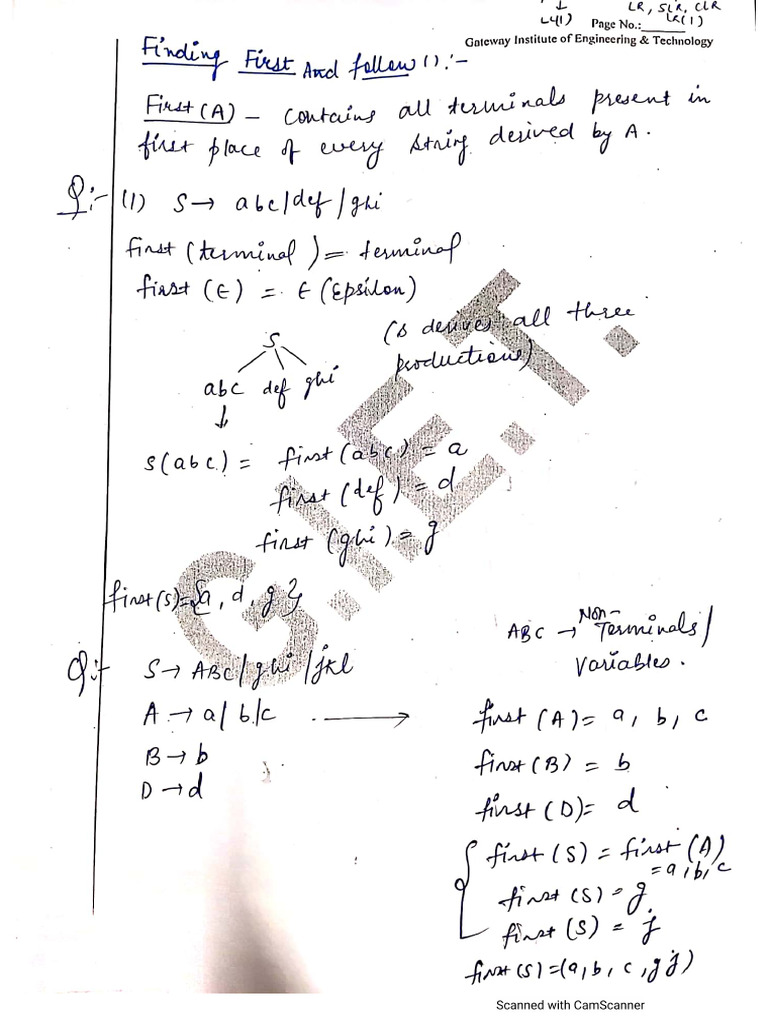 ↓ LR, SLR, CLR
LL(1) Page No.:______ LR(1)
Gateway Institute of Engineering & Technology
Finding First And follow ():-
First (A) - contains all terminals present in
first place of every string derived by A.
Q:- (1) S → abc/def/ghi
first (terminal) = terminal
first (ϵ) = ϵ (Epsilon)
S
(S derives all three
productions)
abc def ghi
↓
S(abc) = first(abc) = a
first (def) = d
first (ghi) = g
G.I.E.T.
first(s)={a, d, g}
ABC → Non-Terminals/
Variables.
Q:- S → ABC/ghi/jkl
A → a/b/c → first (A) = a, b, c
B → b first (B) = b
D → d first (D) = d
first (S) = first (A)
= a, b, c
first (S) = g
first (S) = j
first (S) = (a, b, c, g j)
Scanned with CamScanner